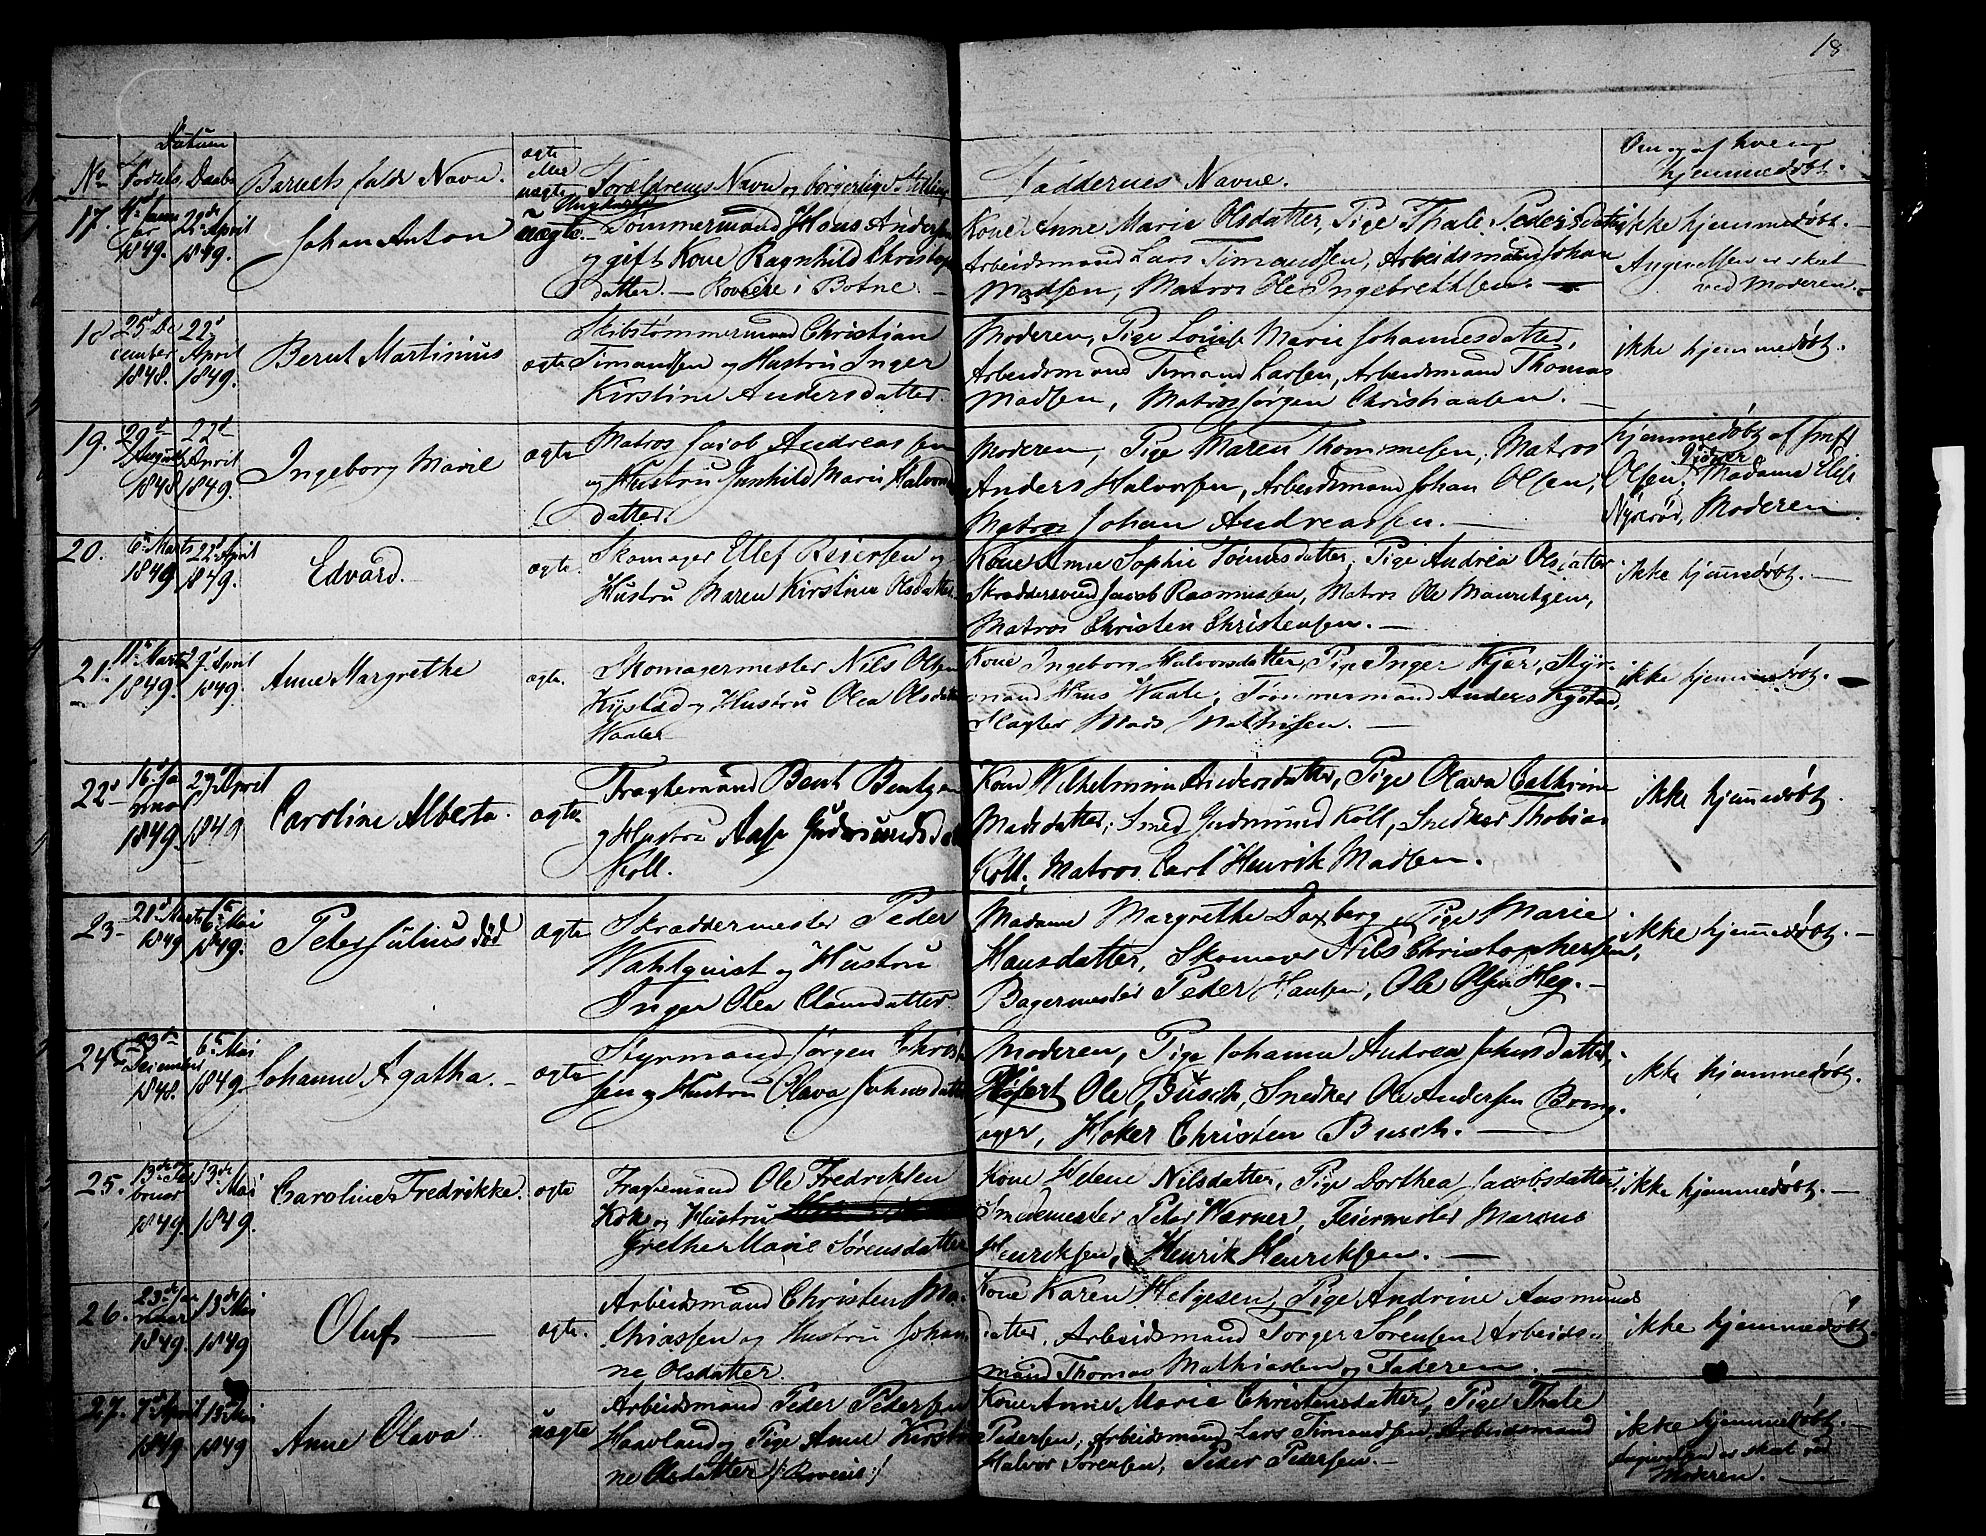 18
Datum
No Fødsels Daabs Barnets fulde Navn. ægte eller uægte Forældrenes Navn og borgerlige Stilling Faddernes Navne. Om og af hvem hjemmedøbt.
17. 1849. 22de April 1849. Johan Anton uægte. Ungkarl Tømmermand Hans Andersen
og gift Kone Ragnhild Christophers
datter. — Roveie i Botne. —
Kone Anne Marie Olsdatter, Pige Thale Pedersdatter
Arbeidsmand Lars Timandsen, Arbeidsmand Johan
Madsen, Matros Ole Ingebrethsen. —
ikke hjemmedøbt. —
Angivelsen er skeet
ved Moderen. —
18 25de December 1848. 22d April 1849. Bernt Martinius ægte
Skibstømmermand Christian
Timandsen og Hustru Inger
Kirstine Andersdatter.
Moderen, Pige Louise Marie Johannesdatter,
Arbeidsmand Timand Larsen, Arbeidsmand Thomas
Madsen, Matros Jørgen Christiansen. —
ikke hjemmedøbt.
19. 29d August 1848 22d April 1849. Ingeborg Marie ægte
Matros Jacob Andreassen
og Hustru Gunhild Marie Halvors
datter.
Moderen, Pige Maren Thommesen, Matros
Anders Halvorsen, Arbeidsmand Johan Olsen,
Matros Johan Andreassen. —
hjemmedøbt af
Olsen, Madame Elise
Nyerød, Moderen.
20. 6te Marts 1849 22d April 1849. Edvard. ægte.
Skomager Ellef Reiersen og
Hustru Maren Kirstine Olsdatter.
Kone Anne Sophie Tønnesdatter, Pige Andrea Olsdatter
Skræddersvend Jacob Rasmussen, Matros Ole Mauritzen,
Matros Christen Christensen. —
ikke hjemmedøbt. —
21. 11te Marts 1849. 29d April 1849. Anne Margrethe ægte.
Skomagermester Nils Olsen
Kystad og Hustru Olea Olsdatter
Waale
Kone Ingeborg Halvorsdatter, Pige Inger Kjær, Styr-
mand Hans Waale, Tømmermand Anders Kystad,
Slagter Mads Mathisen. —
ikke hjemmedøbt. —
22 16d Januar 1849. 29d April 1849 Caroline Alberta. ægte
Fragtemand Bent Bentzen
og Hustru Aase Gudmundsdatter
Koll.
Kone Wilhelmine Andersdatter, Pige Olava Cathrine
Madsdatter, Smed Gudmund Koll, Snedker Thobias
Koll, Matros Carl Henrik Madsen.
ikke hjemmedøbt.
23 21d Marts 1849 6te Mai 1849. Peter Julius død ægte
Skræddermester Peder
Wahlquist og Hustru
Inger Olea Clausdatter
Madame Margrethe Daxberg, Pige Marie
Hansdatter, Skomager Nils Christophersen,
Bagermester Peder Hansen, Ole Olsen Heg. —
ikke hjemmedøbt. —
24 December 1848. 6te Mai 1849. Johanne Agatha. — ægte
Styrmand Jørgen Christ
sen og Hustru Olava Johnsdatter
Moderen, Pige Johanne Andrea Johnsdatter,
Ole Busch, Snedker Ole Andersen Bring-
ager, Høker Christen Busch. —
ikke hjemmedøbt.
25. 13de Februar 1849. 13de Mai 1849. Caroline Fredrikke. ægte
Fragtemand Ole Fredriksen
Kok og Hustru
Grethe Marie Sørensdatter
Kone Helene Nilsdatter, Pige Dorthea Jacobsdatter
Smedemester Peter Werner, Feiermester Marcus
Henriksen, Henrik Henriksen. —
ikke hjemmedøbt. —
26. 23de Januar 1849. 13de Mai 1849 Oluf — ægte.
Arbeidsmand Christen Ma-
thiassen og Hustru Johan
ne Olsdatter.
Kone Karen Helgesen, Pige Andrine Aasmunds
datter, Arbeidsmand Torger Sørensen, Arbeids-
mand Thomas Mathiassen og Faderen. —
ikke hjemmedøbt.
27. 7d April 1849 13de Mai 1849 Anne Olava uægte
Arbeidsmand Peder Pedersen
Haavland og Pige Anne Kirsti
ne Olsdatter /: Roveie :/
Kone Anne Marie Christensdatter, Pige Thale
Pedersen, Arbeidsmand Lars Timandsen, Arbeidsmand
Halvor Sørensen, Peder Pedersen. —
ikke hjemmedøbt. —
Angivelsen er skeet ved
Moderen. —